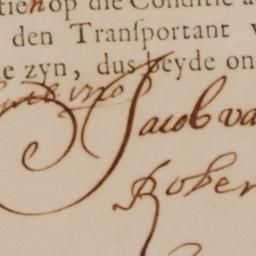 tien op die Conditie a
den Tranſportant v
e zyn, dus beyde on
Jacob va
Rober